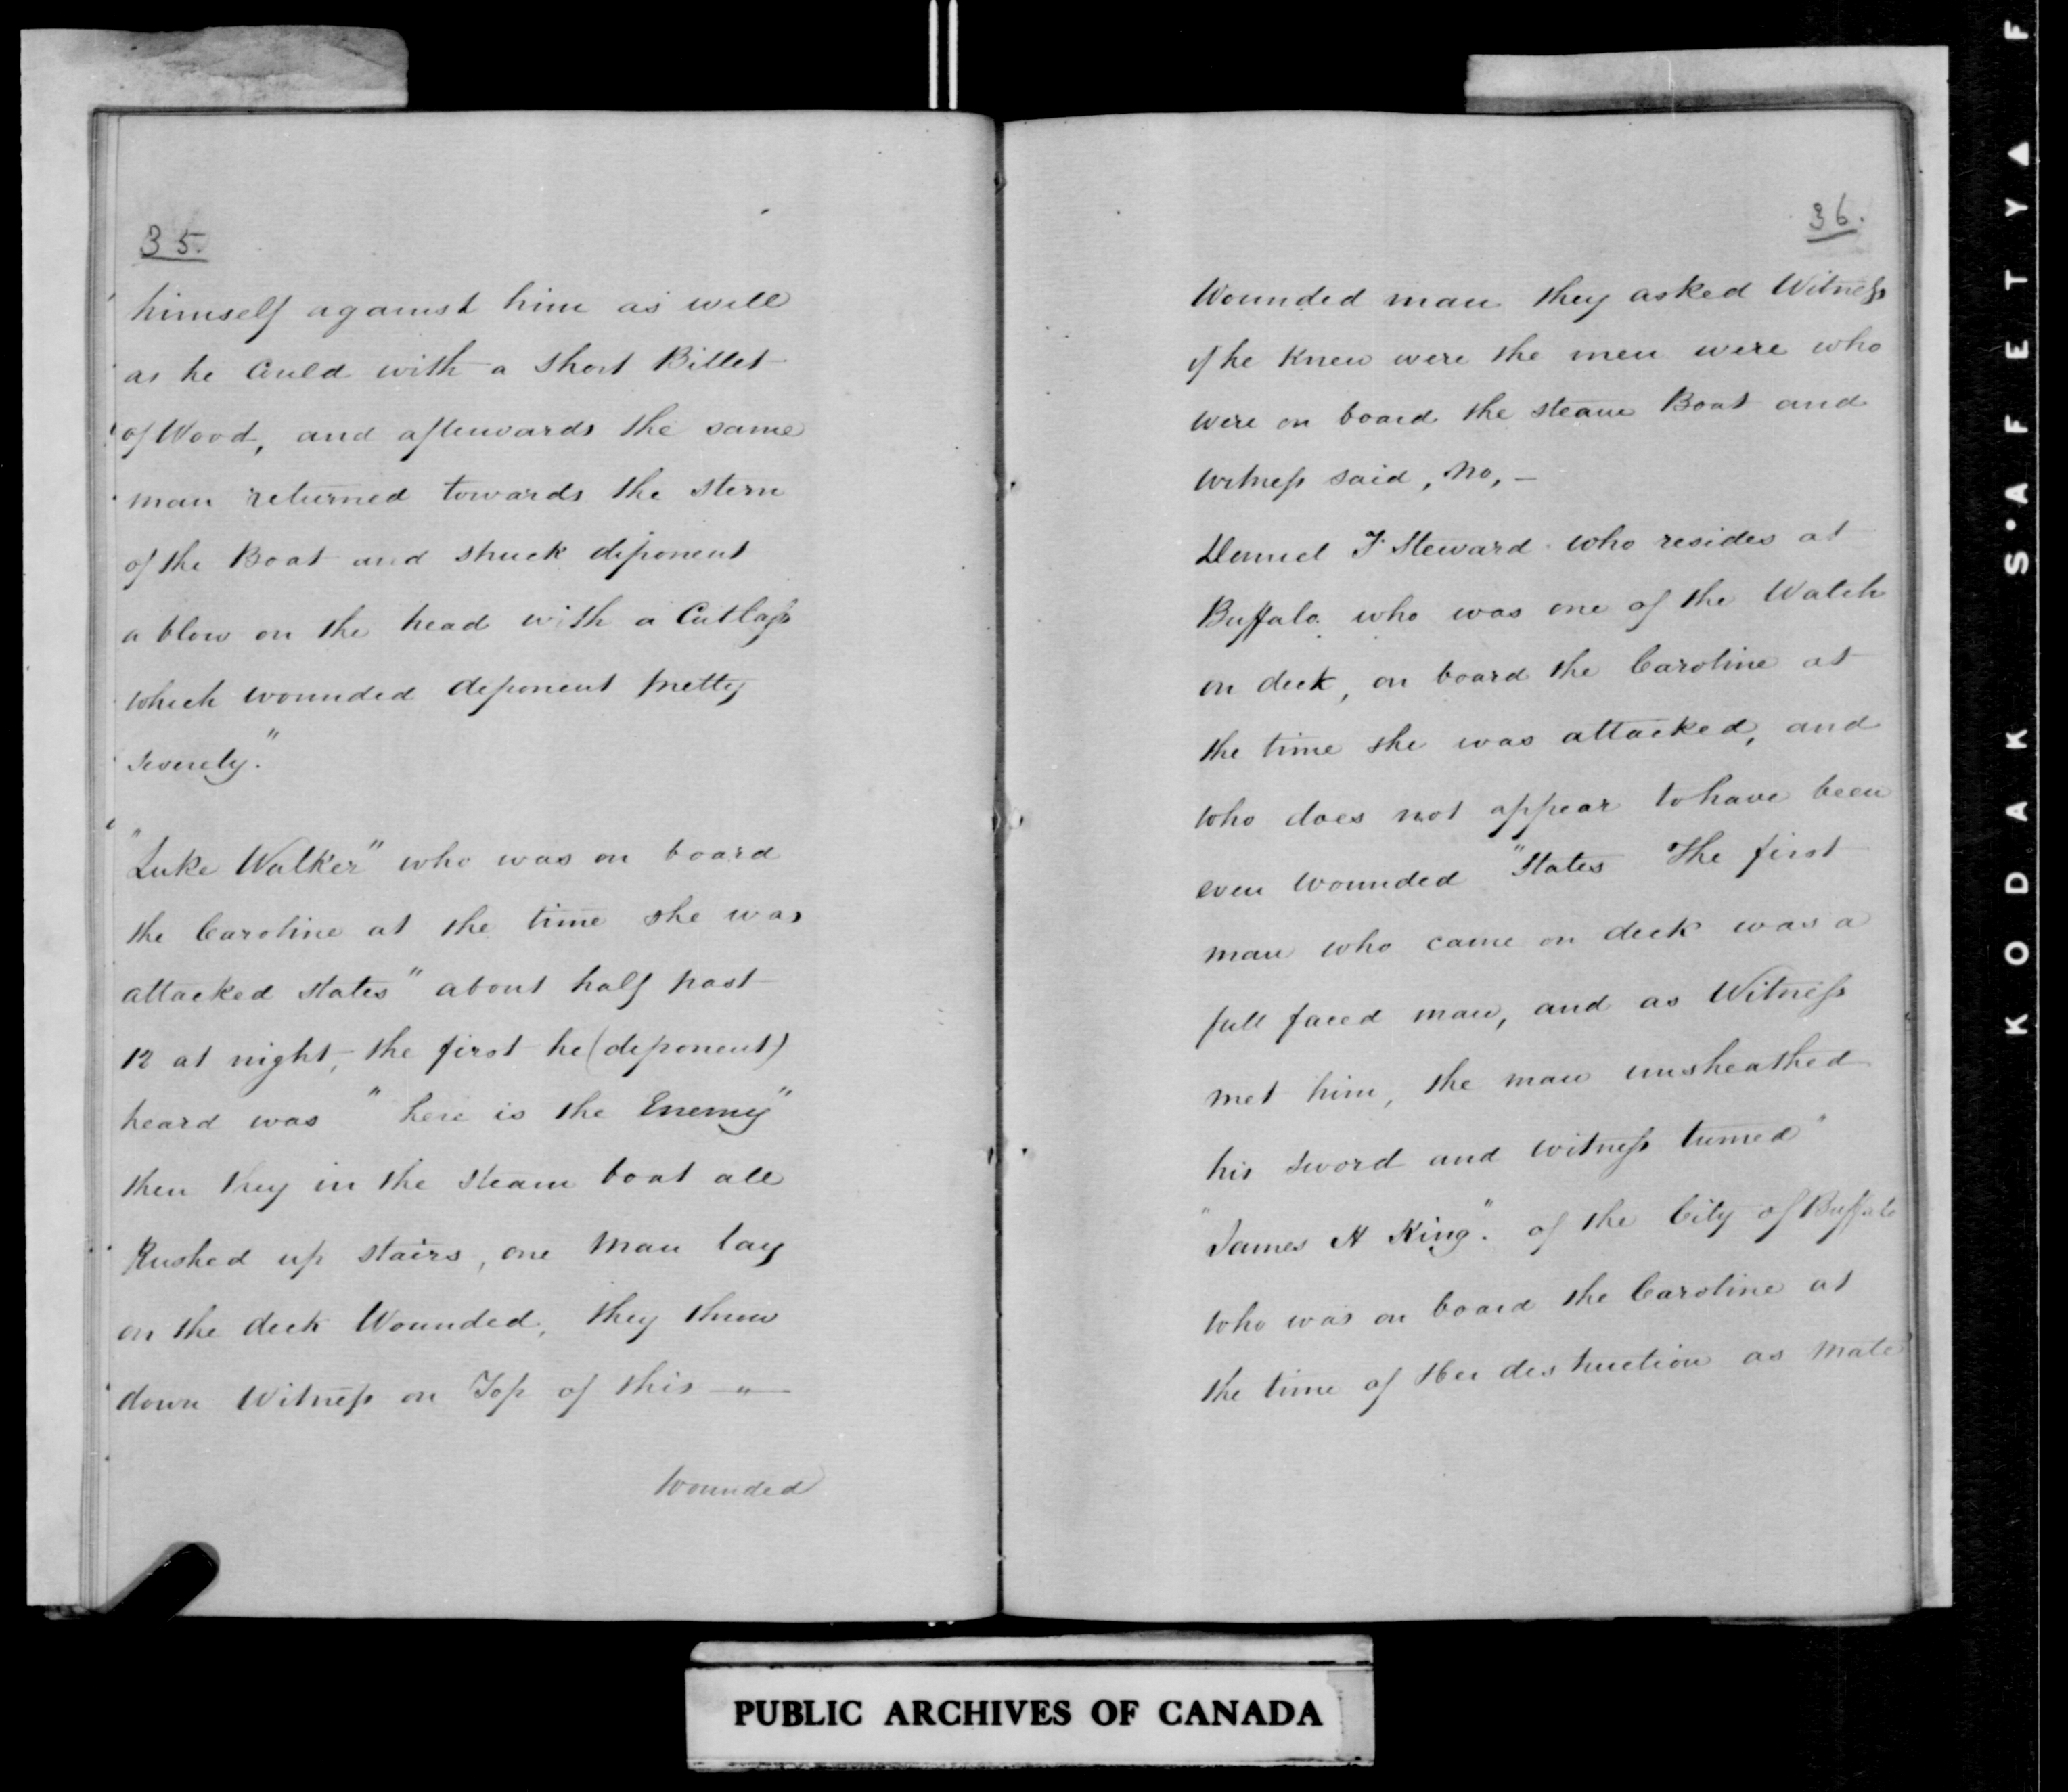 35.
himself against him as well
as he Could with a Short Billet
of Wood, and afterwards the same
man returned towards the stern
of the Boat and struck deponent
a blow on the head with a Cutlass
which wounded deponent pretty
severely."
"Luke Walker" who was on board
the Caroline at the time she was
attacked states" about half past
12 at night, the first he (deponent)
heard was "here is the Enemy"
then they in the Steam boat all
Rushed up stairs, one man lay
on the deck Wounded, they threw
down Witness on Top of this — " —
Wounded
36.
Wounded man they asked Witness
if he Knew were the men were who
were on board the steam Boat and
Witness said, No, —
Daniel F Steward who resides at
Buffalo. who was one of the Watch
on deck, on board the Caroline at
the time she was attacked, and
who does not appear to have been
even wounded "States The first
man who came on deck was a
full faced man, and as Witness
met him, the man unsheathed
his sword and witness turned"
"James H King". of the City of Buffalo
who was on board the Caroline at
the time of Her destruction as Mate
PUBLIC ARCHIVES OF CANADA
KODAK S•A•F•E•T•Y ▲ F